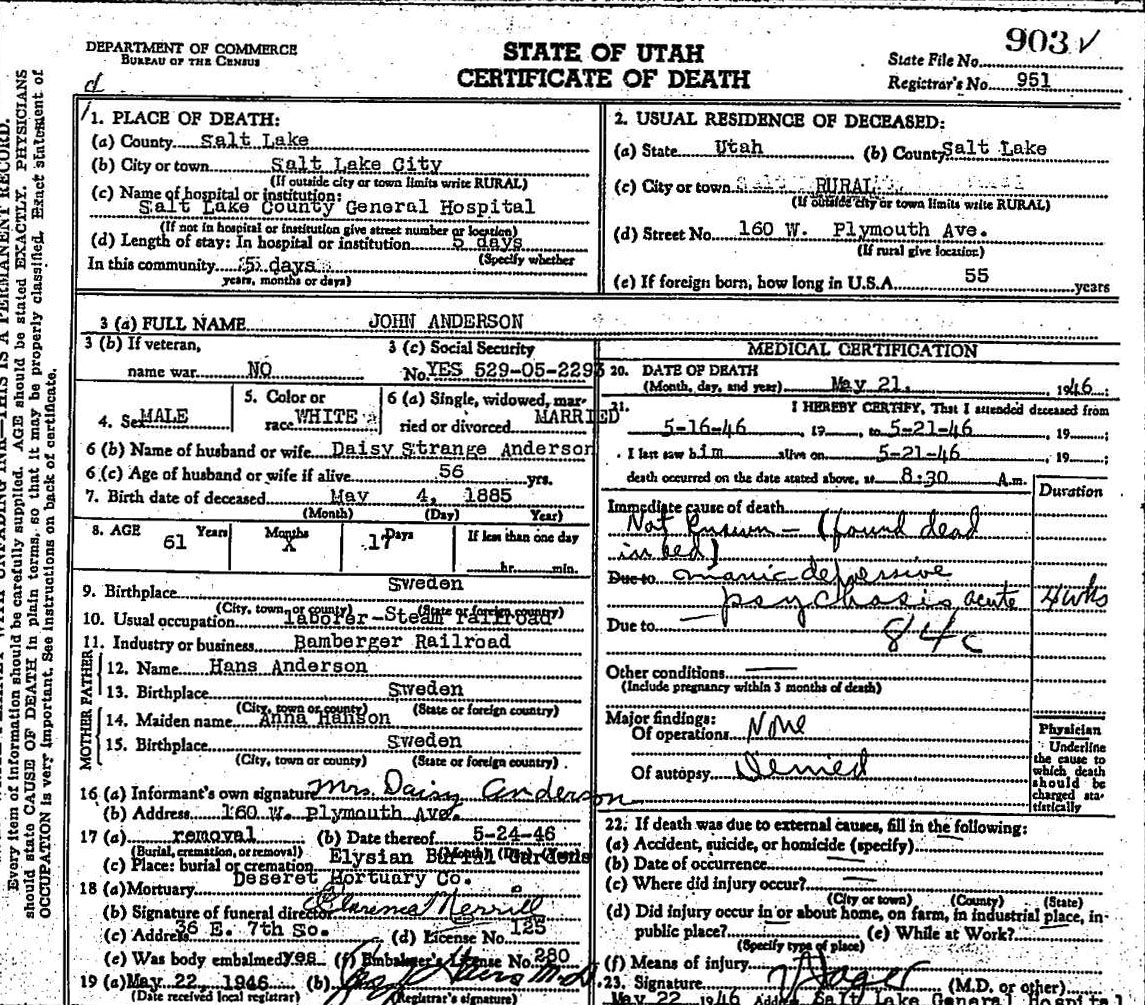 903 ✓
DEPARTMENT OF COMMERCE
BUREAU OF THE CENSUS
STATE OF UTAH
CERTIFICATE OF DEATH
State File No.
Registrar's No. 951
d
1. PLACE OF DEATH:
(a) County Salt Lake
(b) City or town Salt Lake City
(If outside city or town limits write RURAL)
(c) Name of hospital or institution:
Salt Lake County General Hospital
(If not in hospital or institution give street number or location)
(d) Length of stay: In hospital or institution 5 days
(Specify whether
In this community 5 days
years, months or days)
2. USUAL RESIDENCE OF DECEASED:
(a) State Utah (b) County Salt Lake
(c) City or town RURAL
(If outside city or town limits write RURAL)
(d) Street No. 160 W. Plymouth Ave.
(If rural give location)
(e) If foreign born, how long in U.S.A. 55 years
3 (a) FULL NAME JOHN ANDERSON
3 (b) If veteran,
name war NO
3 (c) Social Security
No. YES 529-05-2293
4. Sex MALE
5. Color or
race WHITE
6 (a) Single, widowed, mar-
ried or divorced MARRIED
6 (b) Name of husband or wife Daisy Strange Anderson
6 (c) Age of husband or wife if alive 56 yrs.
7. Birth date of deceased May 4, 1885
(Month) (Day) Year)
8. AGE 61 Years Months X 17 Days If less than one day
hr. min.
9. Birthplace Sweden
(City, town or county) (State or foreign country)
10. Usual occupation laborer-Steam railroad
11. Industry or business Bamberger Railroad
FATHER
12. Name Hans Anderson
13. Birthplace Sweden
(City, town or county) (State or foreign country)
MOTHER
14. Maiden name Anna Hanson
15. Birthplace Sweden
(City, town or county) (State or foreign country)
16 (a) Informant's own signature Mrs. Daisy Anderson
(b) Address 160 W. Plymouth Ave.
17 (a) removal (b) Date thereof 5-24-46
(Burial, cremation, or removal) (Month) (Day) (Year)
(c) Place: burial or cremation Elysian Burial Gardens
18 (a) Mortuary Deseret Mortuary Co.
(b) Signature of funeral director Clarence Merrill
(c) Address 36 E. 7th So. (d) License No. 125
(e) Was body embalmed yes (f) Embalmer's License No. 280
19 (a) May 22, 1946 (b)
(Date received local registrar) (Registrar's signature)
MEDICAL CERTIFICATION
20. DATE OF DEATH
(Month, day, and year) May 21. 1946
21. I HEREBY CERTIFY, That I attended deceased from
5-16-46, 19 , to 5-21-46, 19 ;
I last saw him alive on 5-21-46, 19 ;
death occurred on the date stated above, at 8:30 A.m.
Duration
Immediate cause of death
Not known - (found dead
in bed)
Due to manic depressive
psychosis, acute 4 wks
Due to 84c
Other conditions
(Include pregnancy within 3 months of death)
Major findings:
Of operations None
Of autopsy Denied
Physician
Underline
the cause to
which death
should be
charged sta-
tistically
22. If death was due to external causes, fill in the following:
(a) Accident, suicide, or homicide (specify)
(b) Date of occurrence
(c) Where did injury occur?
(City or town) (County) (State)
(d) Did injury occur in or about home, on farm, in industrial place, in
public place? (e) While at Work?
(Specify type of place)
(f) Means of injury
23. Signature Hager (M.D. or other)
May 22 1946 Salt Lake General Hospital
Every item of information should be carefully supplied. AGE should be stated EXACTLY. PHYSICIANS
should state CAUSE OF DEATH in plain terms, so that it may be properly classified. Exact statement of
OCCUPATION is very important. See instructions on back of certificate.